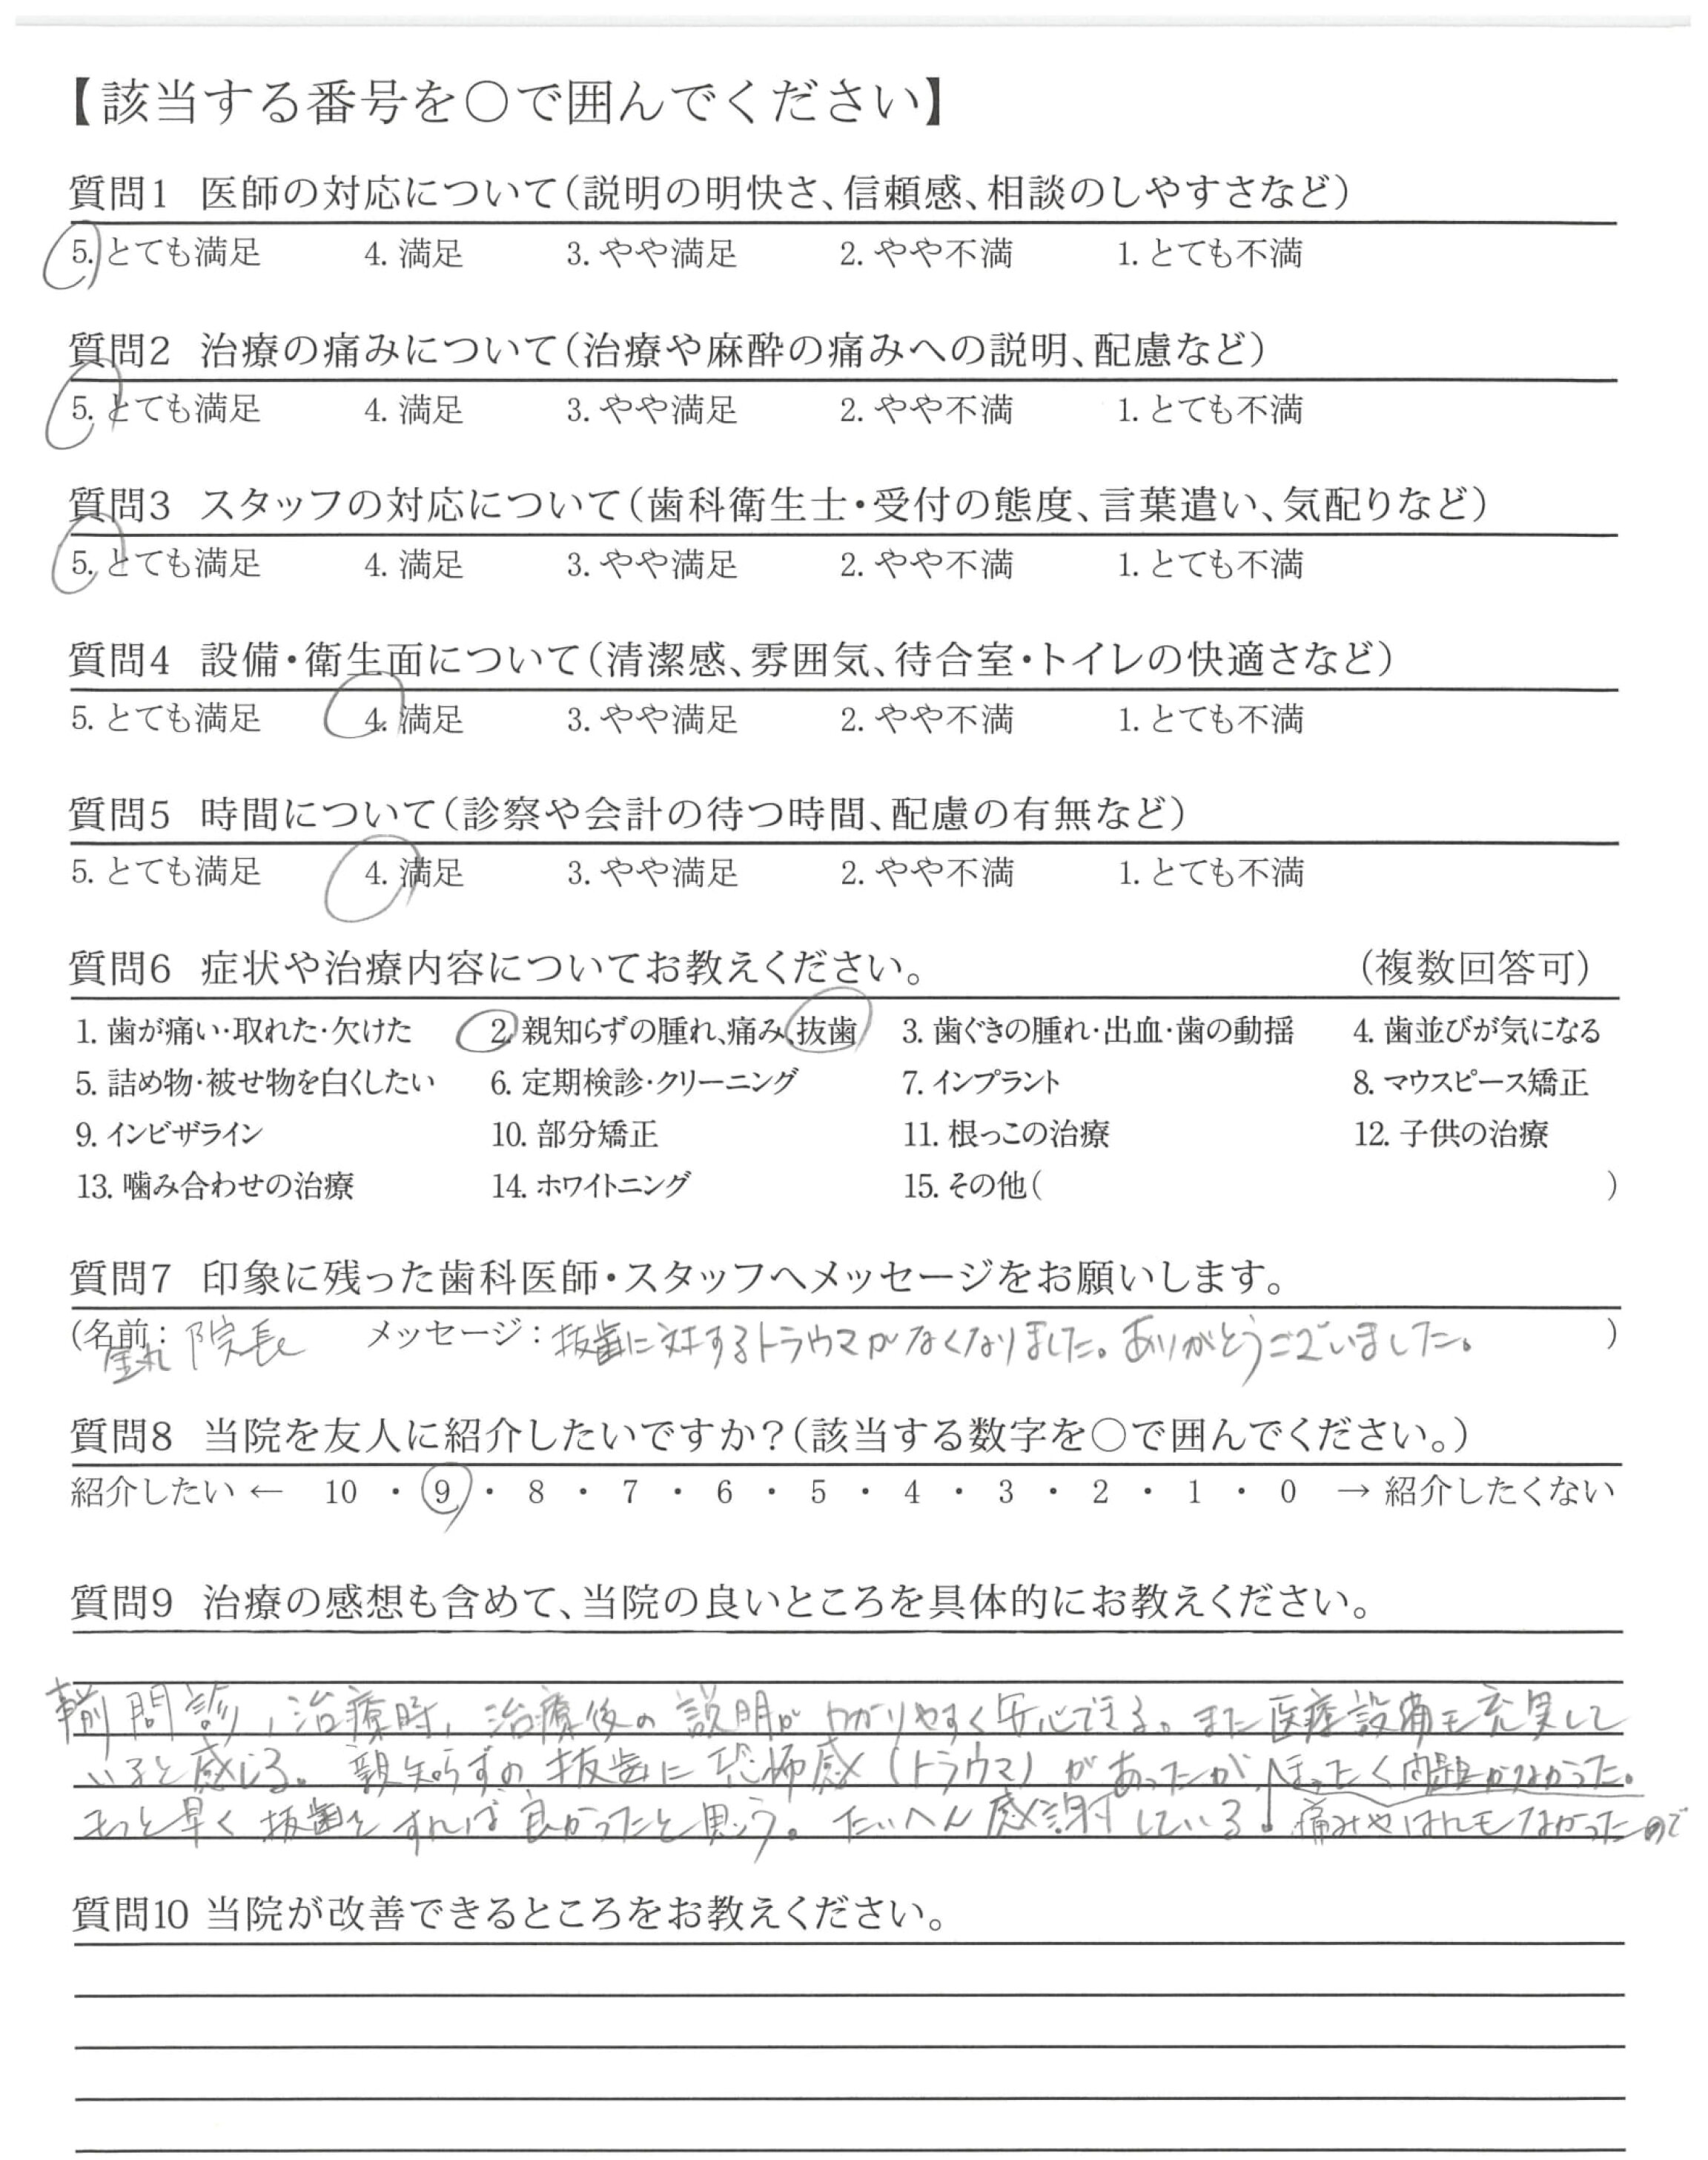 【該当する番号を〇で囲んでください】
質問1 医師の対応について（説明の明快さ、信頼感、相談のしやすさなど）
5. とても満足 4. 満足 3. やや満足 2. やや不満 1. とても不満
質問2 治療の痛みについて（治療や麻酔の痛みへの説明、配慮など）
5. とても満足 4. 満足 3. やや満足 2. やや不満 1. とても不満
質問3 スタッフの対応について（歯科衛生士・受付の態度、言葉遣い、気配りなど）
5. とても満足 4. 満足 3. やや満足 2. やや不満 1. とても不満
質問4 設備・衛生面について（清潔感、雰囲気、待合室・トイレの快適さなど）
5. とても満足 4. 満足 3. やや満足 2. やや不満 1. とても不満
質問5 時間について（診察や会計の待つ時間、配慮の有無など）
5. とても満足 4. 満足 3. やや満足 2. やや不満 1. とても不満
質問6 症状や治療内容についてお教えください。 （複数回答可）
1. 歯が痛い・取れた・欠けた 2. 親知らずの腫れ、痛み、抜歯 3. 歯ぐきの腫れ・出血・歯の動揺 4. 歯並びが気になる
5. 詰め物・被せ物を白くしたい 6. 定期検診・クリーニング 7. インプラント 8. マウスピース矯正
9. インビザライン 10. 部分矯正 11. 根っこの治療 12. 子供の治療
13. 噛み合わせの治療 14. ホワイトニング 15. その他（ ）
質問7 印象に残った歯科医師・スタッフへメッセージをお願いします。
（名前： 院長 メッセージ：抜歯に対するトラウマがなくなりました。ありがとうございました。 ）
質問8 当院を友人に紹介したいですか？（該当する数字を〇で囲んでください。）
紹介したい ← 10 ・ 9 ・ 8 ・ 7 ・ 6 ・ 5 ・ 4 ・ 3 ・ 2 ・ 1 ・ 0 → 紹介したくない
質問9 治療の感想も含めて、当院の良いところを具体的にお教えください。
事前問診，治療時，治療後の説明がわかりやすく安心できる。また医療設備も充実して
いると感じる。親知らずの抜歯に恐怖感（トラウマ）があったが、まったく問題がなかった。
もっと早く抜歯をすれば良かったと思う。たいへん感謝している。 痛みやはれもなかったので
質問10 当院が改善できるところをお教えください。